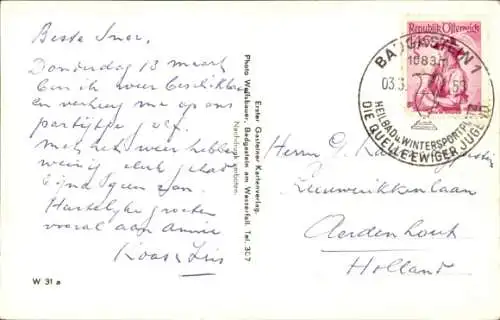 Beste Iner.
Donderdag 13 maart
ben ik weer
en verheug me op ons
partijtje
met het weer hebben
weinig geluk gehad
Hartelijke groeten
vooral aan Annie
Koos
W 31 a
Erster Gasteiner Kartenverlag.
Photo Wolfsbauer, Badgastein am Wasserfall. Tel. 307
Nachdruck verboten.
Republik Österreich
BADGASTEIN 1
1083m
03.3.
HEILBAD u. WINTERSPORTPLATZ
DIE QUELLE EWIGER JUGEND
Herrn G.
Leeuwerikkenlaan
Aerdenhout
Holland